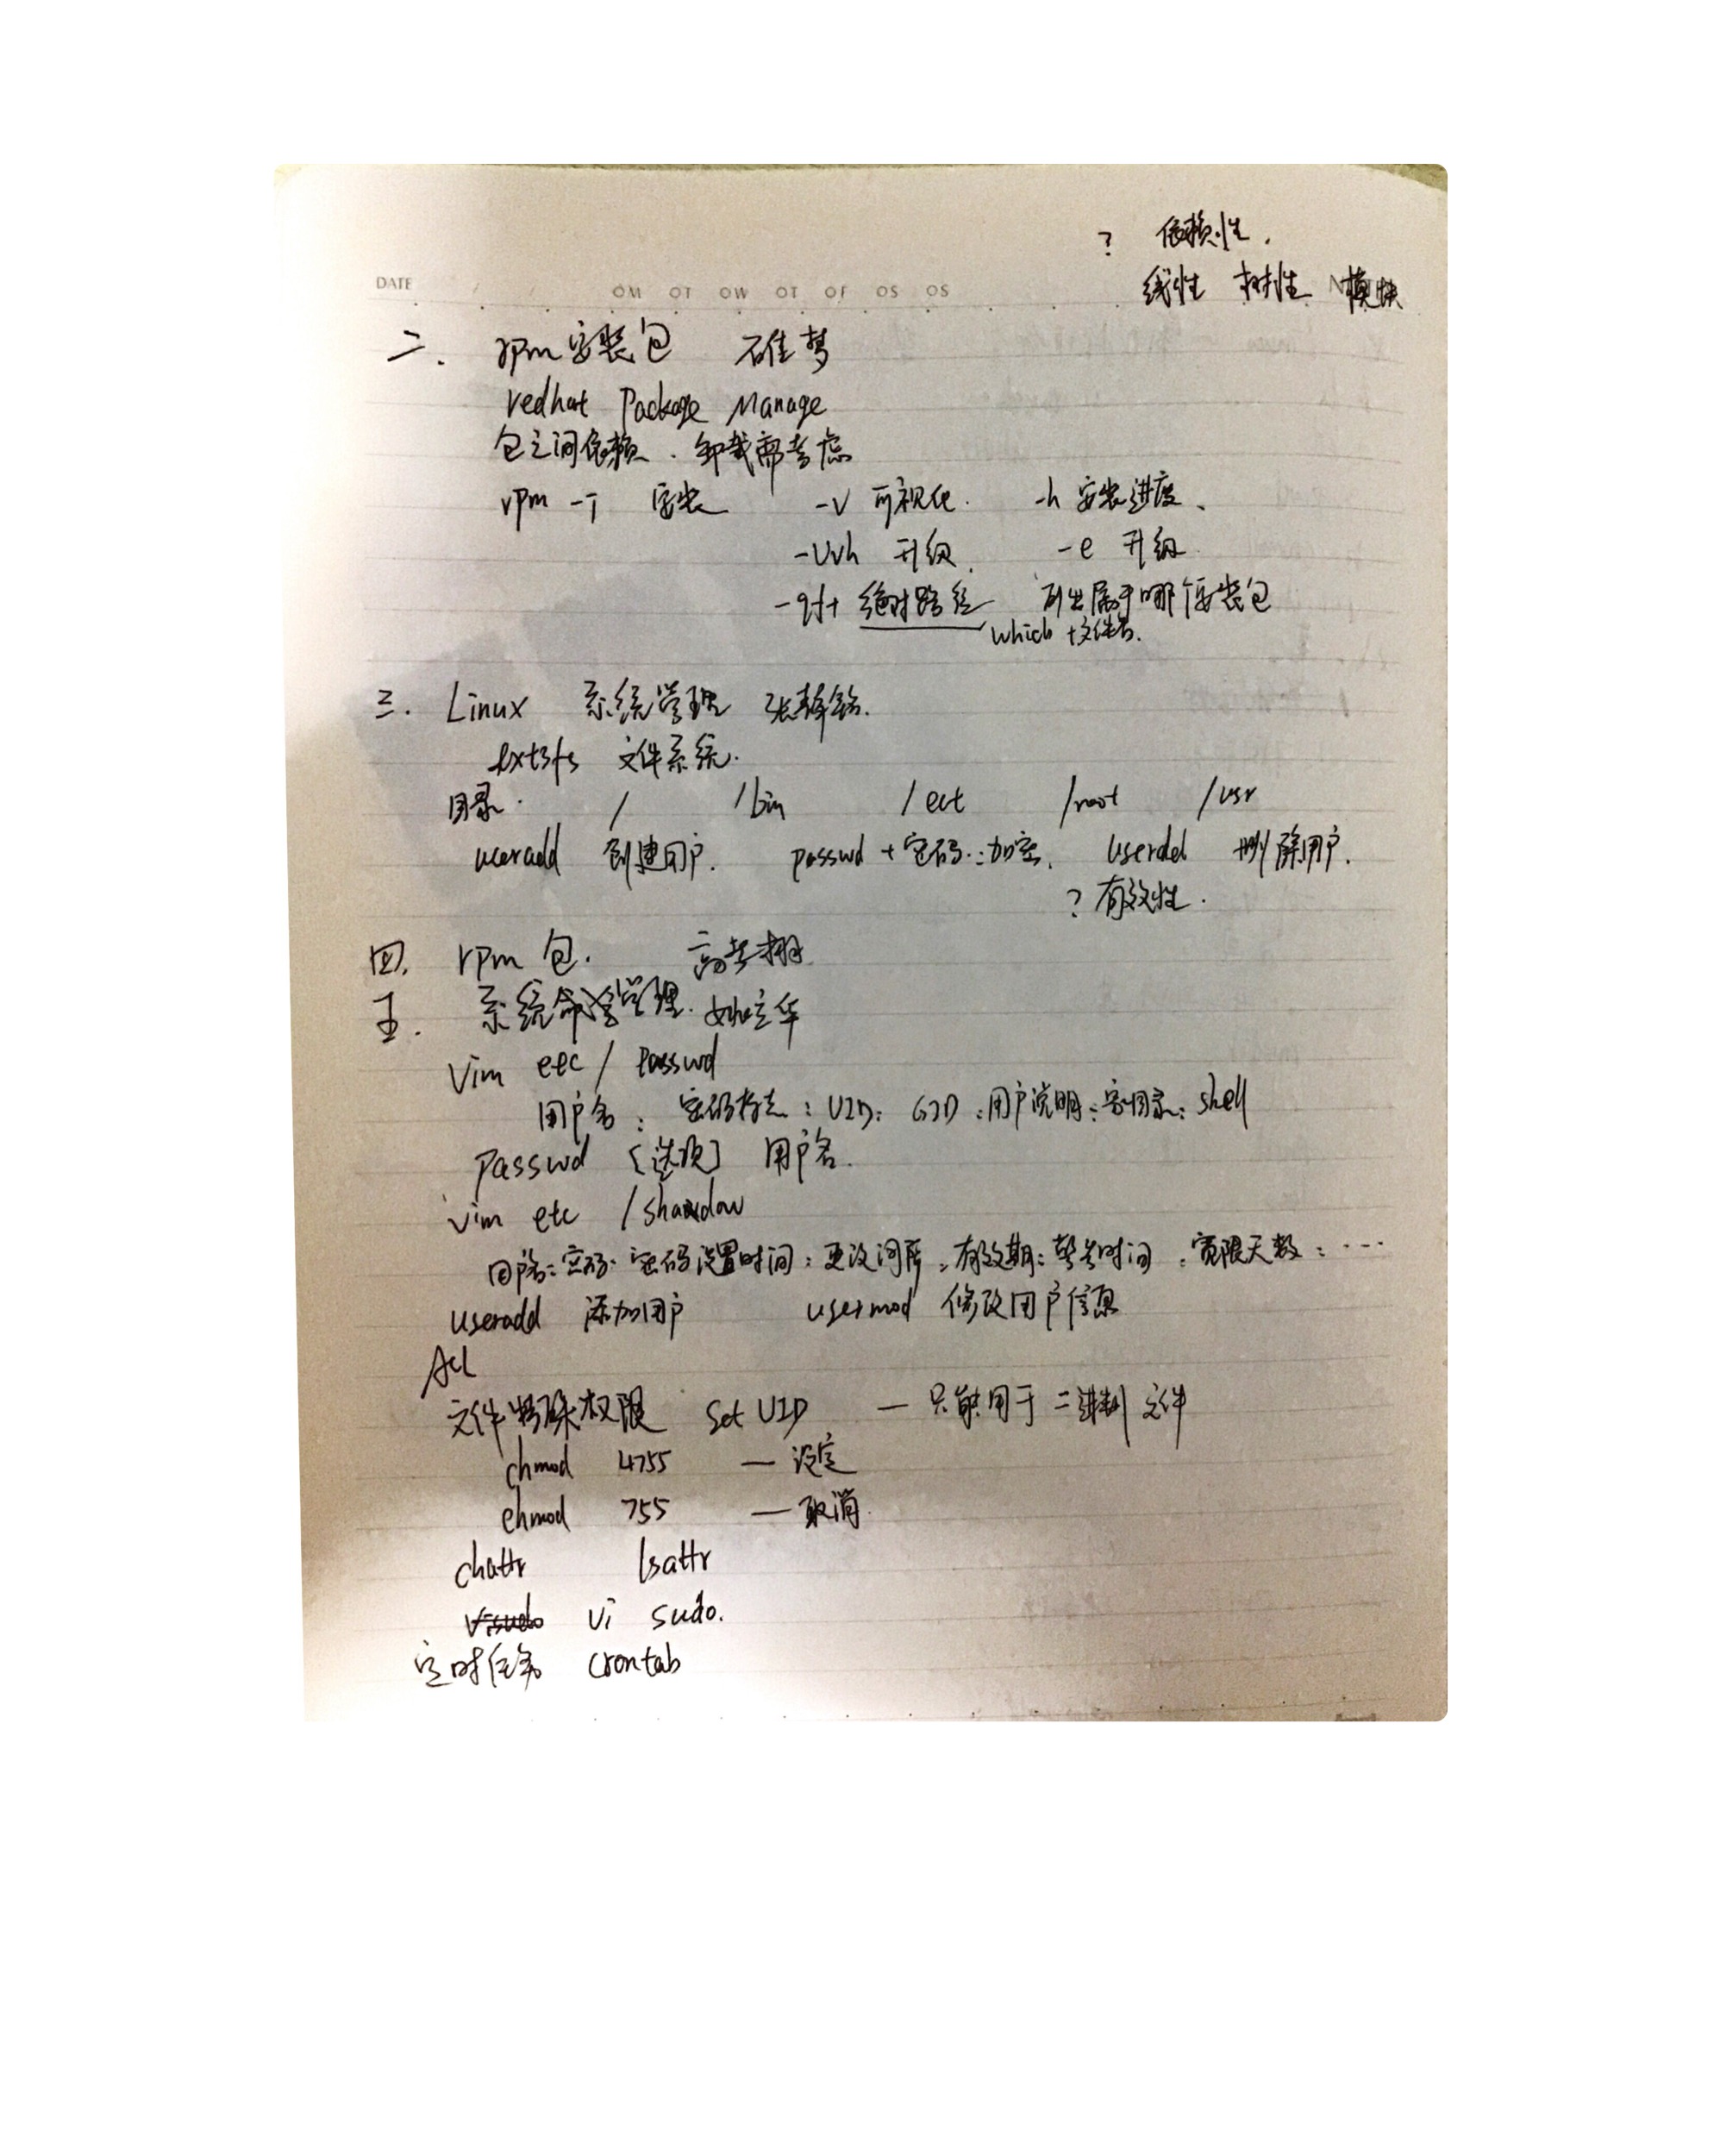 ? 依赖性.
DATE / / OM OT OW OT OF OS OS
线性 树性 模块
二. rpm安装包 崔梦
redhat Package Manage
包之间依赖. 卸载需考虑
rpm -i 安装 -v 可视化. -h 安装进度、
-Uvh 升级. -e 升级
-qf+ 绝对路径 列出属于哪个安装包
which +文件名.
三. Linux 系统管理
ext3fs 文件系统.
目录. / /bin /ect /root /usr
useradd 创建用户. passwd + 密码:加密. userdel 删除用户.
? 有效性.
四. rpm 包.
五. 系统命令管理. 立华
Vim etc / passwd
用户名: 密码标志: UID: GID :用户说明: 家目录: shell
passwd [选项] 用户名.
vim etc /shadow
用户名: 密码: 密码设置时间: 更改间隔: 有效期: 警告时间: 宽限天数: ……
useradd 添加用户 usermod 修改用户信息
Acl
文件特殊权限 Set UID — 只能用于二进制文件
chmod 4755 — 设定
chmod 755 — 取消.
chattr lsattr
visudo vi sudo.
定时任务 crontab